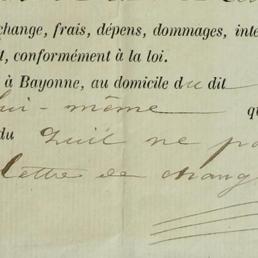 change, frais, dépens, dommages, inte
t, conformément à la loi.
à Bayonne, au domicile du dit
lui-même q
du qu'il ne pa
lettre de chang